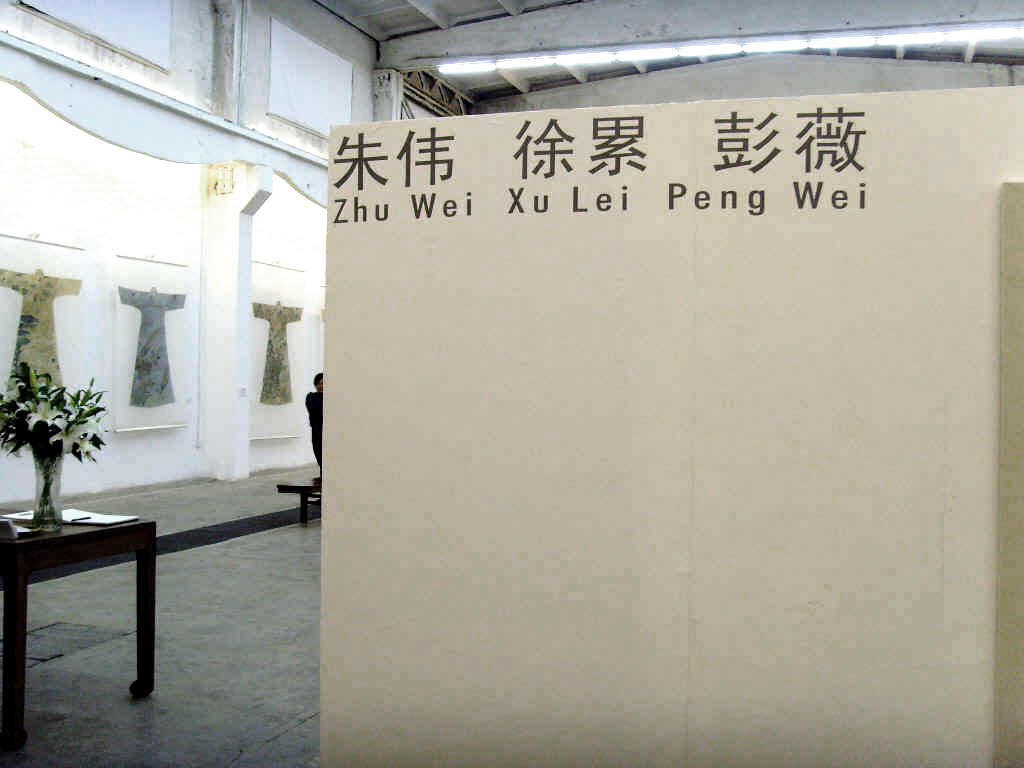 朱伟 徐累 彭薇
Zhu Wei Xu Lei Peng Wei